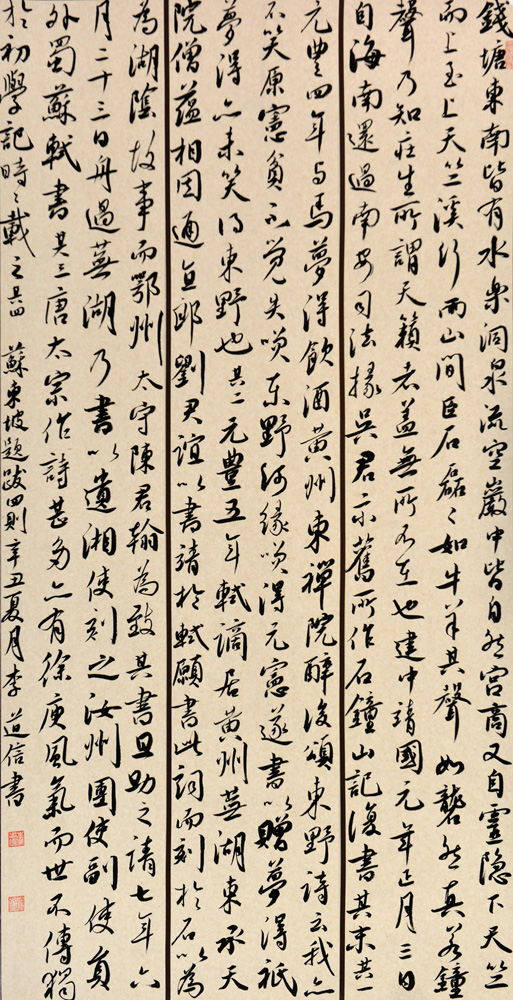 錢塘東南皆有水樂洞泉流空巖中皆自然宮商又自靈隐下天竺
而上至上天竺溪行兩山間巨石磊磊如牛羊其聲如礱然真若鐘
聲乃知莊生所謂天籟者蓋無所不在也建中靖國元年正月三日
自海南還過南安司法掾吳君示舊所作石鐘山記復書其末其一
元豐四年与馬夢得飲酒黃州東禪院醉後頌東野詩云我亦
不笑原憲貧不覺失笑東野何緣笑得元憲遂書以贈夢得衹
夢得亦未笑得東野也其二元豐五年軾謫居黃州蕪湖東承天
院僧蘊相因通直郎劉君誼以書請於軾願書此詞而刻於石以為
為湖陰故事而鄂州太守陳君翰為致其書且助之請七年六
月二十三日舟過蕪湖乃書以遺湘使刻之汝州團使副使員
外蜀蘇軾書其三唐太宗作詩甚多亦有徐庾風氣而世不傳獨
於初學記時時載之其四 蘇東坡題跋四則辛丑夏月李道信書